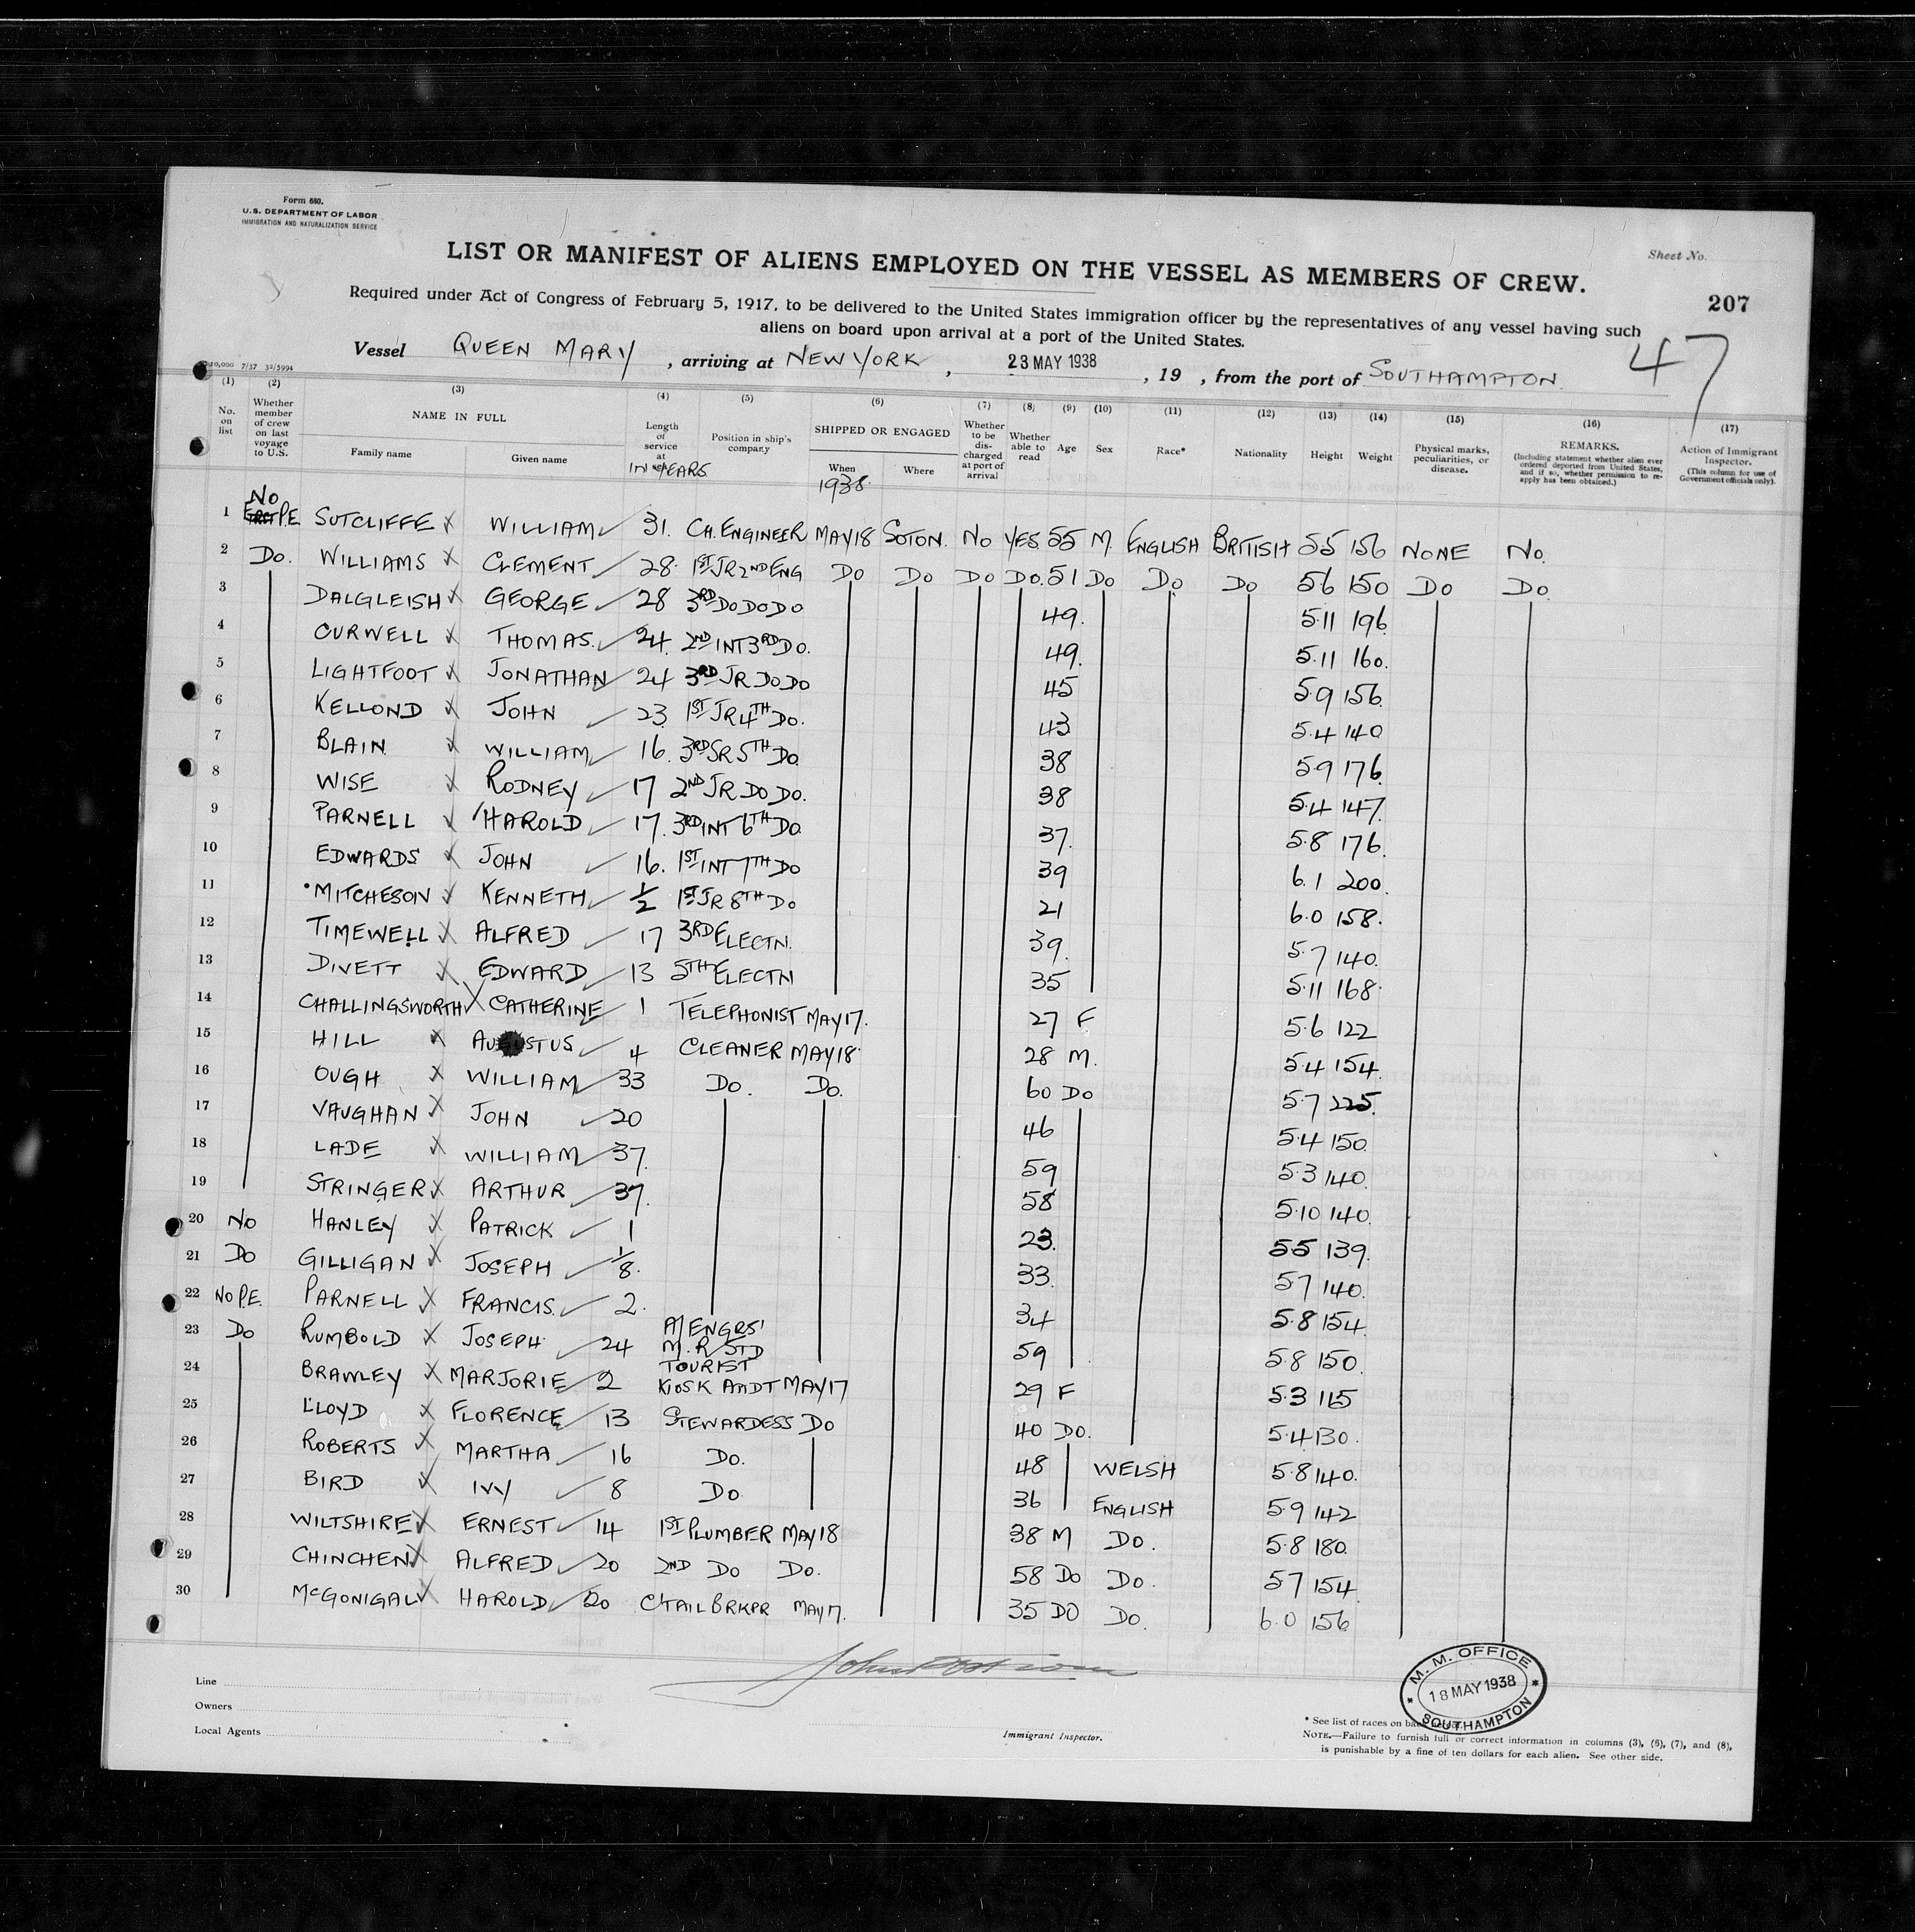 Form 680.
U.S. DEPARTMENT OF LABOR
IMMIGRATION AND NATURALIZATION SERVICE
Sheet No.
LIST OR MANIFEST OF ALIENS EMPLOYED ON THE VESSEL AS MEMBERS OF CREW.
207
Required under Act of Congress of February 5, 1917, to be delivered to the United States immigration officer by the representatives of any vessel having such
aliens on board upon arrival at a port of the United States.
47
Vessel QUEEN MARY, arriving at NEW YORK, 23 MAY 1938, 19 , from the port of SOUTHAMPTON
7/37 32/5994
(1) (2) (3) (4) (5) (6) (7) (8) (9) (10) (11) (12) (13) (14) (15) (16) (17)
No. on list
Whether member of crew on last voyage to U.S.
NAME IN FULL
Family name Given name
Length of service at sea IN YEARS
Position in ship's company
SHIPPED OR ENGAGED
When 1938 Where
Whether to be discharged at port of arrival
Whether able to read
Age
Sex
Race*
Nationality
Height
Weight
Physical marks, peculiarities, or disease.
REMARKS.
(Including statement whether alien ever ordered deported from United States, and if so, whether permission to re-apply has been obtained.)
Action of Immigrant Inspector.
(This column for use of Government officials only).
No
1 P.E. SUTCLIFFE WILLIAM 31. CH. ENGINEER MAY 18 SOTON. NO YES. 55 M. ENGLISH BRITISH 55 156 NONE NO.
2 Do. WILLIAMS CLEMENT 28. 1ST JR 2ND ENG DO DO DO DO. 51 DO DO DO 56 150 DO DO
3 DALGLEISH GEORGE 28 3RD DO DO DO 49. 5.11 196
4 CURWELL THOMAS. 24. 2ND INT 3RD DO. 49. 5.11 160.
5 LIGHTFOOT JONATHAN 24 3RD JR DO DO 45 5.9 156
6 KELLOND JOHN 23 1ST JR 4TH DO. 43 5.4 140
7 BLAIN WILLIAM 16. 3RD SR 5TH DO 38 5.9 176.
8 WISE RODNEY 17 2ND JR DO DO. 38 5.4 147.
9 PARNELL HAROLD 17. 3RD INT 6TH DO 37. 5.8 176.
10 EDWARDS JOHN 16. 1ST INT 7TH DO 39 6.1 200.
11 MITCHESON KENNETH ½ 1ST JR 8TH DO 21 6.0 158.
12 TIMEWELL ALFRED 17 3RD ELECTN. 39. 5.7 140.
13 DIVETT EDWARD 13 5TH ELECTN 35 5.11 168.
14 CHALLINGSWORTH CATHERINE 1 TELEPHONIST MAY 17. 27 F 5.6 122
15 HILL AUGUSTUS 4 CLEANER MAY 18. 28 M. 5.4 154.
16 OUGH WILLIAM 33 DO. DO. 60 DO 5.7 225.
17 VAUGHAN JOHN 20 46 5.4 150.
18 LADE WILLIAM 37. 59 5.3 140.
19 STRINGER ARTHUR 37. 58 5.10 140.
20 NO HANLEY PATRICK 1 23. 55 139.
21 DO GILLIGAN JOSEPH 1/8. 33. 5.7 140.
22 NO P.E. PARNELL FRANCIS. 2. 34 5.8 154.
23 DO RUMBOLD JOSEPH 24 A/ENGRS' M.R/STD 59 5.8 150.
24 BRAWLEY MARJORIE 2 TOURIST KIOSK ANDT MAY 17 29 F 5.3 115
25 LLOYD FLORENCE 13 STEWARDESS DO 40 DO. 5.4 130.
26 ROBERTS MARTHA 16 DO. 48 WELSH 5.8 140.
27 BIRD IVY 8 DO 36 ENGLISH 5.9 142
28 WILTSHIRE ERNEST 14 1ST PLUMBER MAY 18 38 M DO. 5.8 180.
29 CHINCHEN ALFRED 20 2ND DO DO. 58 DO DO. 5.7 154
30 McGONIGAL HAROLD 20 C'TAIL BRKPR MAY 17. 35 DO DO. 6.0 156
Line
Owners
Local Agents
Immigrant Inspector.
M. M. OFFICE
18 MAY 1938
SOUTHAMPTON
* See list of races on back
NOTE.—Failure to furnish full or correct information in columns (3), (6), (7), and (8),
is punishable by a fine of ten dollars for each alien. See other side.